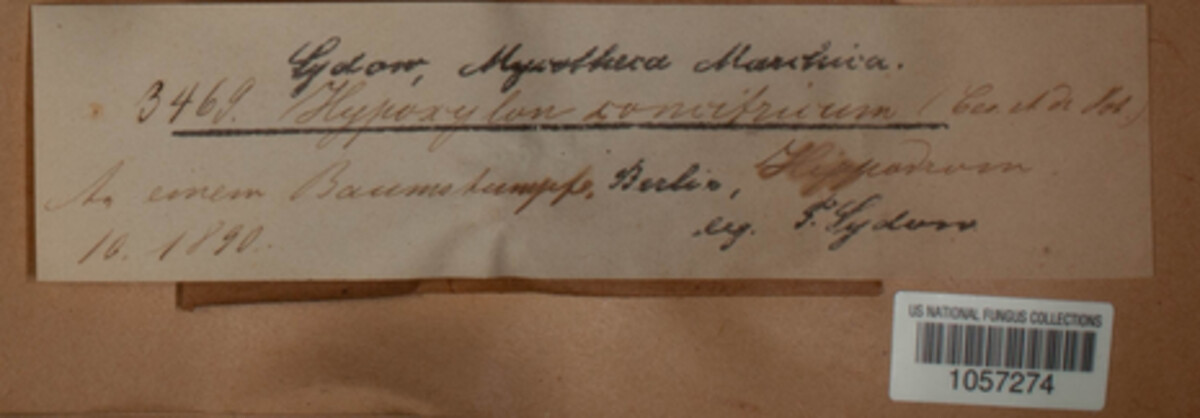 Sydow, Mycotheca Marchica.
3469. Hypoxylon concitricum (Ces. et de Not.)
An einem Baumstumpfe. Berlin, Hippodrom
10. 1890. leg. P. Sydow
US NATIONAL FUNGUS COLLECTIONS
1057274